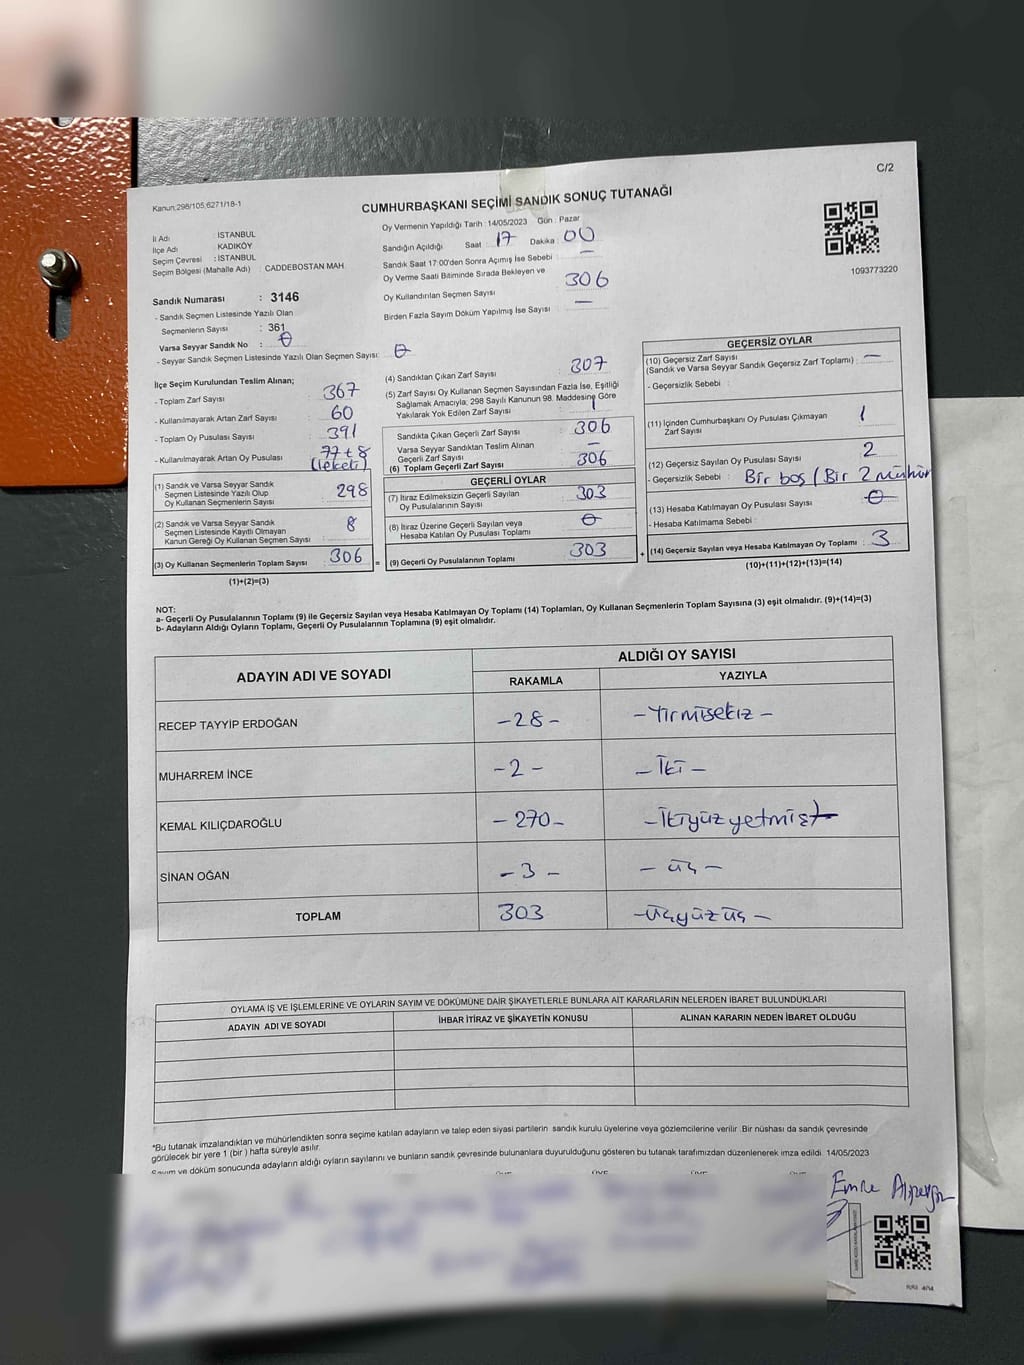 C/2
Kanun:298/105,6271/18-1
CUMHURBAŞKANI SEÇİMİ SANDIK SONUÇ TUTANAĞI
İl Adı : İSTANBUL
İlçe Adı : KADIKÖY
Seçim Çevresi : İSTANBUL
Seçim Bölgesi (Mahalle Adı) : CADDEBOSTAN MAH.
Sandık Numarası : 3146
- Sandık Seçmen Listesinde Yazılı Olan
Seçmenlerin Sayısı : 361
Varsa Seyyar Sandık No : 0
- Seyyar Sandık Seçmen Listesinde Yazılı Olan Seçmen Sayısı: 0
Oy Vermenin Yapıldığı Tarih : 14/05/2023 Gün : Pazar
Sandığın Açıldığı Saat : 17 Dakika : 00
Sandık Saat 17:00'den Sonra Açımış İse Sebebi : —
Oy Verme Saati Bitiminde Sırada Bekleyen ve
Oy Kullandırılan Seçmen Sayısı : 306
Birden Fazla Sayım Döküm Yapılmış İse Sayısı : —
1093773220
İlçe Seçim Kurulundan Teslim Alınan;
- Toplam Zarf Sayısı : 367
- Kullanılmayarak Artan Zarf Sayısı : 60
- Toplam Oy Pusulası Sayısı : 391
- Kullanılmayarak Artan Oy Pusulası : 77+8
(lekeli)
(1) Sandık ve Varsa Seyyar Sandık
Seçmen Listesinde Yazılı Olup
Oy Kullanan Seçmenlerin Sayısı : 298
(2) Sandık ve Varsa Seyyar Sandık
Seçmen Listesinde Kayıtlı Olmayan
Kanun Gereği Oy Kullanan Seçmen Sayısı : 8
(3) Oy Kullanan Seçmenlerin Toplam Sayısı : 306
(1)+(2)=(3)
(4) Sandıktan Çıkan Zarf Sayısı : 307
(5) Zarf Sayısı Oy Kullanan Seçmen Sayısından Fazla İse, Eşitliği
Sağlamak Amacıyla; 298 Sayılı Kanunun 98. Maddesine Göre
Yakılarak Yok Edilen Zarf Sayısı : 1
Sandıkta Çıkan Geçerli Zarf Sayısı : 306
Varsa Seyyar Sandıktan Teslim Alınan
Geçerli Zarf Sayısı : —
(6) Toplam Geçerli Zarf Sayısı : 306
GEÇERLİ OYLAR
(7) İtiraz Edilmeksizin Geçerli Sayılan
Oy Pusulalarının Sayısı : 303
(8) İtiraz Üzerine Geçerli Sayılan veya
Hesaba Katılan Oy Pusulası Toplamı : 0
(9) Geçerli Oy Pusulalarının Toplamı : 303
GEÇERSİZ OYLAR
(10) Geçersiz Zarf Sayısı
(Sandık ve Varsa Seyyar Sandık Geçersiz Zarf Toplamı) : —
- Geçersizlik Sebebi :
(11) İçinden Cumhurbaşkanı Oy Pusulası Çıkmayan
Zarf Sayısı : 1
(12) Geçersiz Sayılan Oy Pusulası Sayısı : 2
- Geçersizlik Sebebi : Bir boş / Bir 2 mühür
(13) Hesaba Katılmayan Oy Pusulası Sayısı : 0
- Hesaba Katılmama Sebebi :
(14) Geçersiz Sayılan veya Hesaba Katılmayan Oy Toplamı : 3
(10)+(11)+(12)+(13)=(14)
NOT:
a- Geçerli Oy Pusulalarının Toplamı (9) ile Geçersiz Sayılan veya Hesaba Katılmayan Oy Toplamı (14) Toplamları, Oy Kullanan Seçmenlerin Toplam Sayısına (3) eşit olmalıdır. (9)+(14)=(3)
b- Adayların Aldığı Oyların Toplamı, Geçerli Oy Pusulalarının Toplamına (9) eşit olmalıdır.
ADAYIN ADI VE SOYADI ALDIĞI OY SAYISI
RAKAMLA YAZIYLA
RECEP TAYYİP ERDOĞAN -28- -Yirmisekiz-
MUHARREM İNCE -2- -İki-
KEMAL KILIÇDAROĞLU -270- -İkiyüzyetmiş-
SİNAN OĞAN -3- -üç-
TOPLAM 303 -üçyüzüç-
OYLAMA İŞ VE İŞLEMLERİNE VE OYLARIN SAYIM VE DÖKÜMÜNE DAİR ŞİKAYETLERLE BUNLARA AİT KARARLARIN NELERDEN İBARET BULUNDUKLARI
ADAYIN ADI VE SOYADI İHBAR İTİRAZ VE ŞİKAYETİN KONUSU ALINAN KARARIN NEDEN İBARET OLDUĞU
*Bu tutanak imzalandıktan ve mühürlendikten sonra seçime katılan adayların ve talep eden siyasi partilerin sandık kurulu üyelerine veya gözlemcilerine verilir. Bir nüshası da sandık çevresinde
görülecek bir yere 1 (bir) hafta süreyle asılır.
Sayım ve döküm sonucunda adayların aldığı oyların sayılarını ve bunların sandık çevresinde bulunanlara duyurulduğunu gösteren bu tutanak tarafımızdan düzenlenerek imza edildi. 14/05/2023
Emre